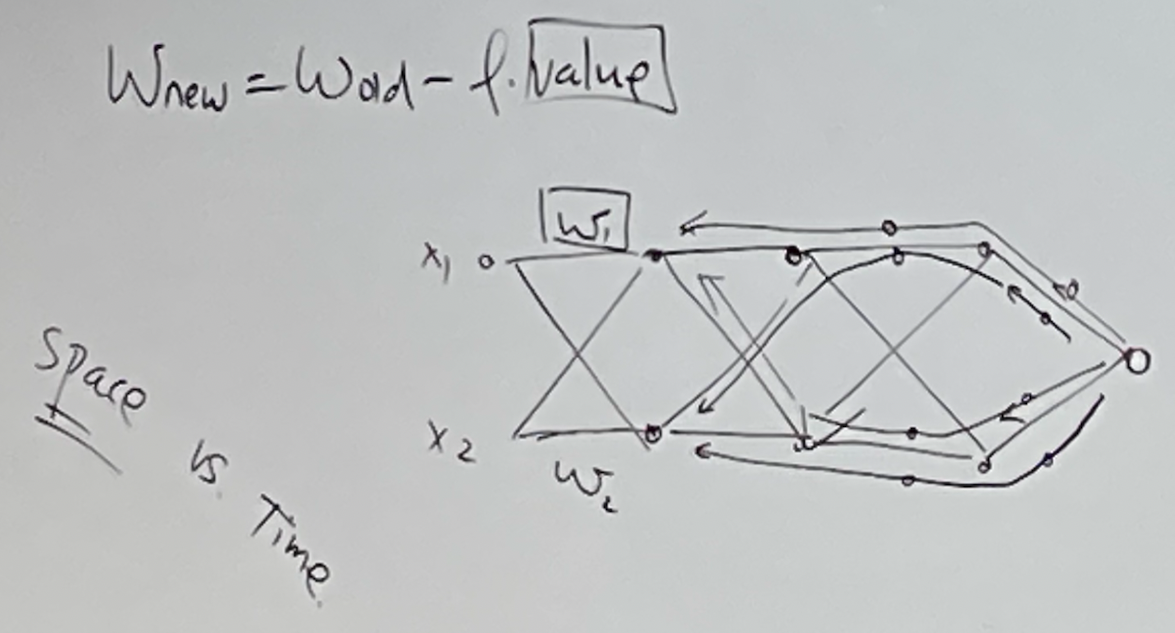 Wnew = Wold - ρ. value
W₁
x₁
x₂
W₂
Space
vs.
Time.